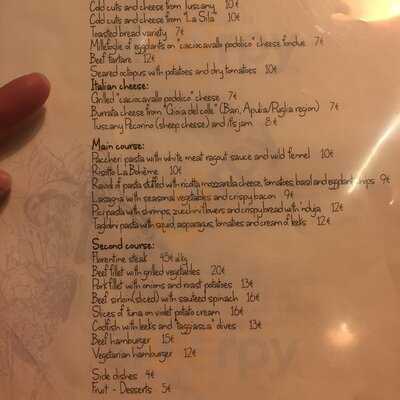 Cold cuts and cheese from Tuscany 10€
Cold cuts and cheese from "La Sila" 10€
Toasted bread variety 7€
Millefoglie of eggplants on "caciocavallo podolico" cheese fondue 7€
Beef tartare 12€
Seared octopus with potatoes and dry tomatoes 10€
Italian cheese:
Grilled "caciocavallo podolico" cheese 7€
Burrata cheese from "Gioia del colle" (Bari, Apulia/Puglia region) 7€
Tuscany Pecorino (sheep cheese) and its jam 8€
Main course:
Paccheri pasta with white meat ragout sauce and wild fennel 10€
Risotto La Bohème 10€
Ravioli pasta stuffed with ricotta mozzarella cheese, tomatoes, basil and eggplant chips 9€
Lasagna with seasonal vegetables and crispy bacon 9€
Pici pasta with shrimps, zucchini flowers and crispy bread with 'nduja 12€
Tagliolini pasta with squid, asparagus, tomatoes and cream of leeks 12€
Second course:
Florentine steak 45€ al kg
Beef fillet with grilled vegetables 20€
Pork fillet with onions and roast potatoes 13€
Beef sirloin (sliced) with sauteed spinach 16€
Slices of tuna on violet potato cream 16€
Codfish with leeks and "taggiasca" olives 13€
Beef hamburger 15€
Vegetarian hamburger 12€
Side dishes 4€
Fruit - Desserts 5€